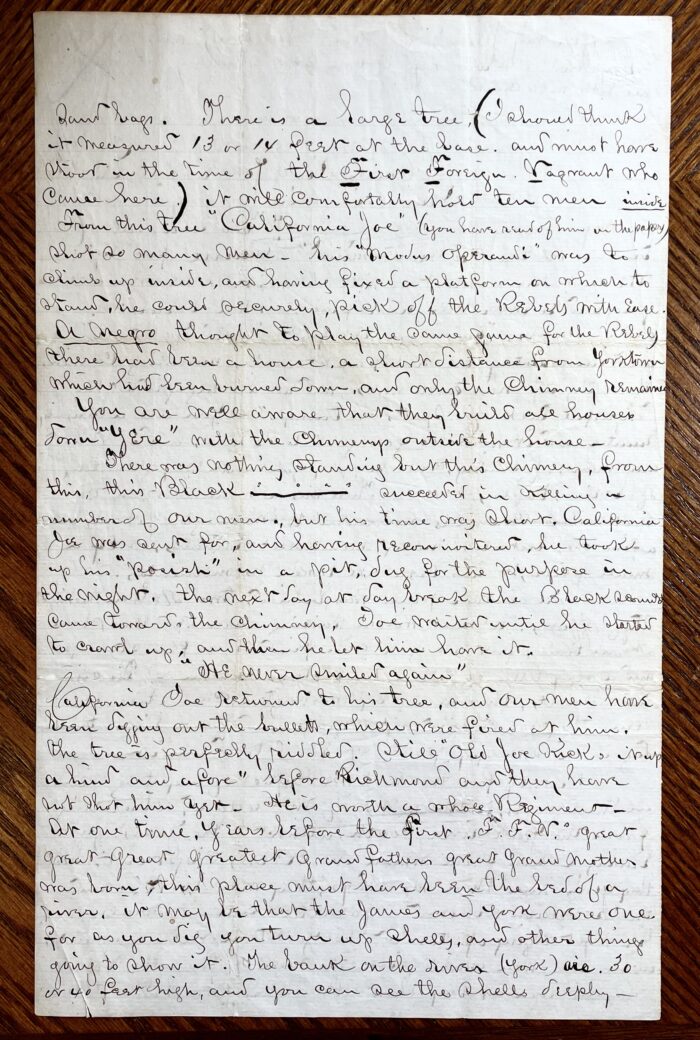 Sand bags. There is a large tree, (I should think
it measured 13 or 14 feet at the base. and must have
stood in the time of the First Foreign Vagrant who
came here.) it will comfortably hold ten men inside
From this tree "California Joe" (you have read of him in the papers)
shot so many men – his "Modus Operandi" was to
climb up inside, and having fixed a platform on which to
stand, he could securely, pick off the Rebels with ease.
A Negro thought to play the same game for the Rebels
there had been a house, a short distance from Yorktown
which had been burned down, and only the Chimney remained
You are well aware that they build all houses
down "Yere" with the Chimneys outside the house –
There was nothing standing but this Chimney, from
this, this Black succeeded in killing a
number of our men., but his time was short. California
Joe was sent for, and having reconnoitered, he took
up his "posish" in a pit, dug for the purpose in
the night. the next day at day break the Black scoundrel
came towards the Chimney, Joe waited until he started
to crawl up, and then he let him have it.
"He never smiled again"
California Joe returned to his tree, and our men have
been digging out the bullets, which were fired at him.
the tree is perfectly riddled. Still "Old Joe Kicks it up
a hind and afore" before Richmond and they have
not shot him yet – He is worth a whole Regiment –
At one time, years before the first "F.F.V." great
great-Great Greatest, Grandfathers great Grand Mother
was born, this place must have been the bed of a
river. it may be that the James and York were one.
for as you dig you turn up shells, and other things
going to show it. The bank on the river (York) are. 30
or 40 feet high, and you can see the shells deeply –